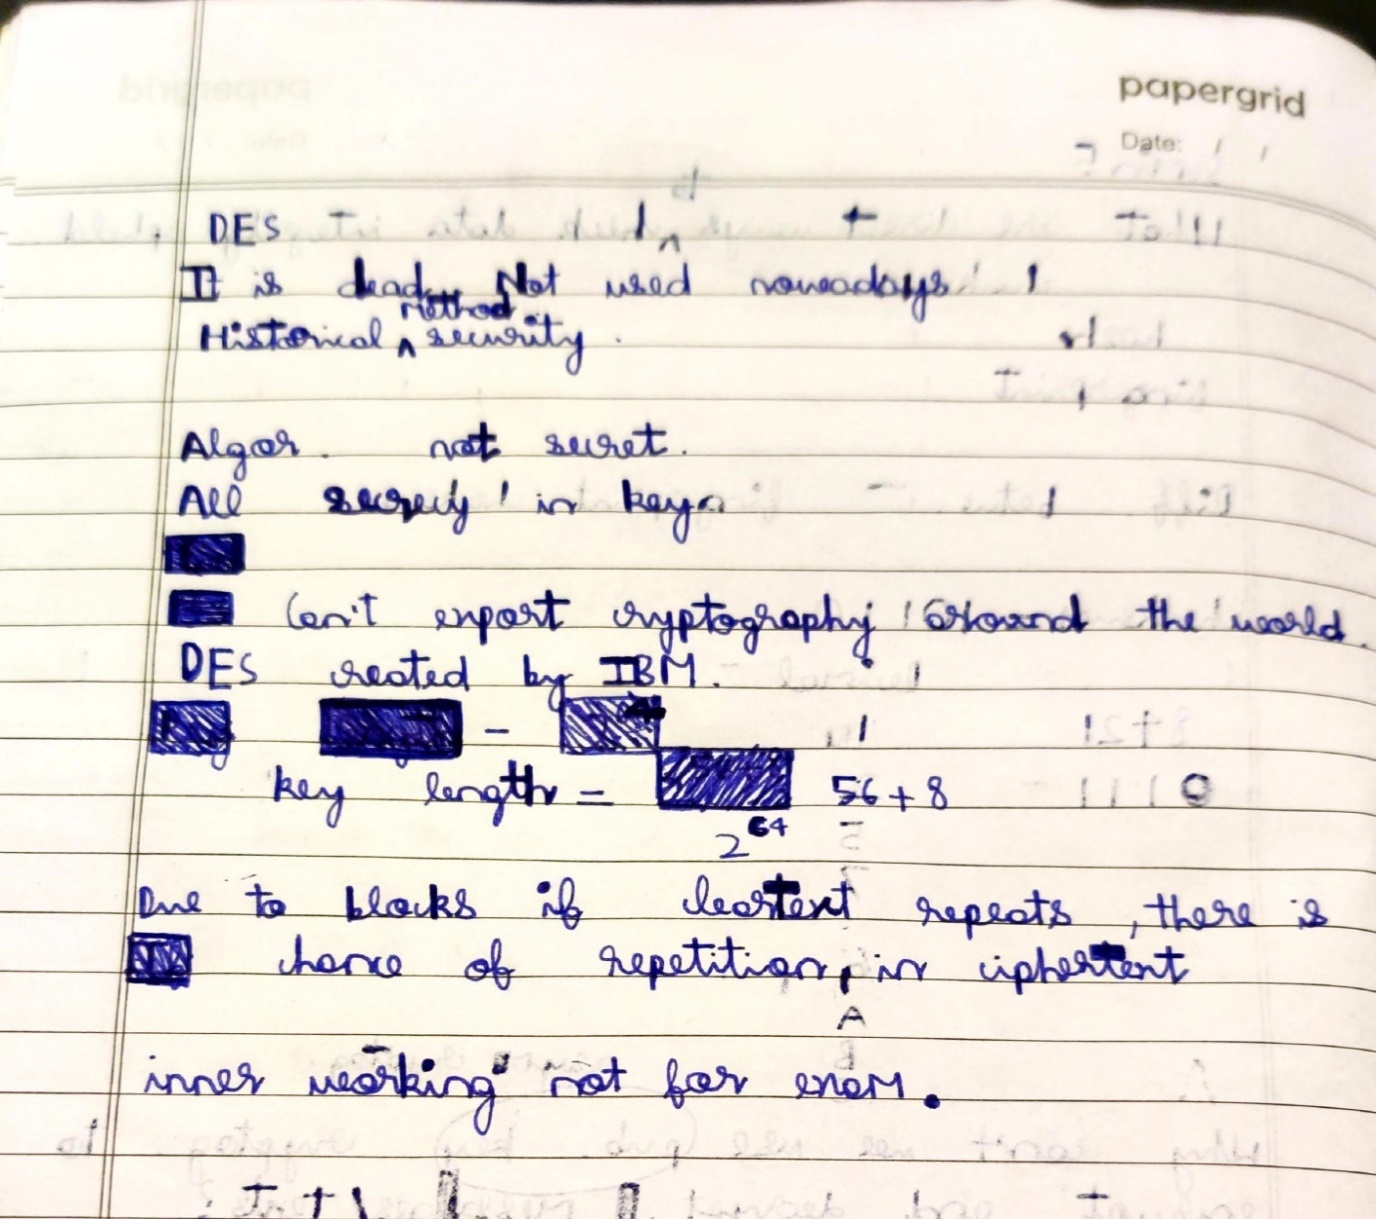 papergrid
Date:
DES
It is dead. Not used nowadays
Historical method security.
Algor. not secret.
All secrecy in key.
Can't export cryptography around the world.
DES created by IBM.
key length = 56 + 8
2^64
Due to blocks if cleartext repeats, there is
chance of repetition, in ciphertext
inner working not for exam.